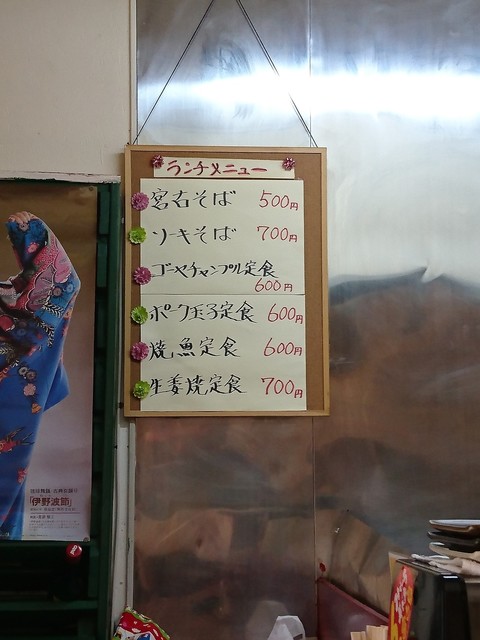 ランチメニュー
宮古そば 500円
ソーキそば 700円
ゴーヤチャンプル定食
600円
ポーク玉子定食 600円
焼魚定食 600円
生姜焼定食 700円
「伊野波節」